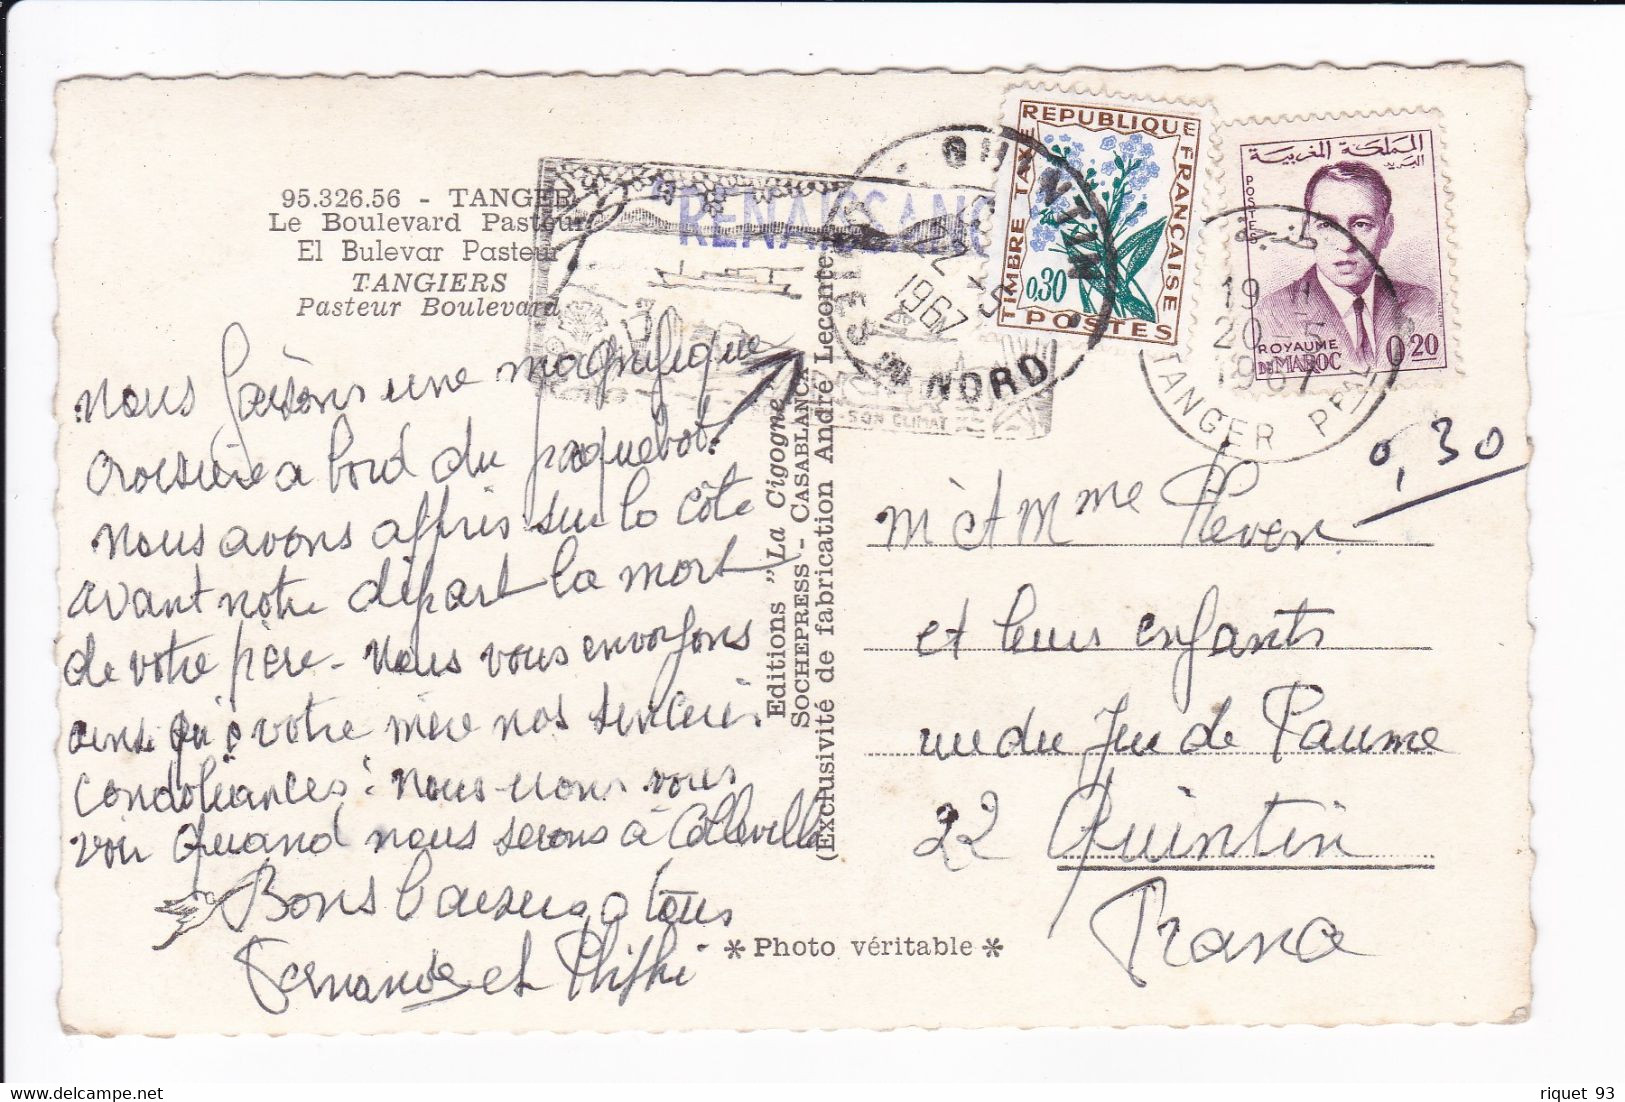 95.326.56 - TANGER
Le Boulevard Pasteur
El Bulevar Pasteur
TANGIERS
Pasteur Boulevard
RENAISSANC
nous faisons une magnifique
croisière a bord du paquebot.
nous avons appris sur la côte
avant notre départ la mort
de votre père - Nous vous envoyons
ainsi qu'à votre mère nos sincères
condoléances: nous irons vous
voir quand nous serons à Colleville
Bons baisers a tous
Fernande et
Editions "La Cigogne"
SOCHEPRESS - CASABLANCA
(Exclusivité de fabrication André Leconte
* Photo véritable *
QUINTIN
22
1967
DU NORD
SON CLIMAT
REPUBLIQUE FRANÇAISE
TIMBRE TAXE
0,30
POSTES
المملكة المغربية
البريد
POSTES
ROYAUME
DU MAROC
0,20
طنجة
19 H
20 -5
1967
TANGER PPAL
0,30
M et Mme Peven
et leurs enfants
rue du Jeu de Paume
22 Quintin
France
riquet 93